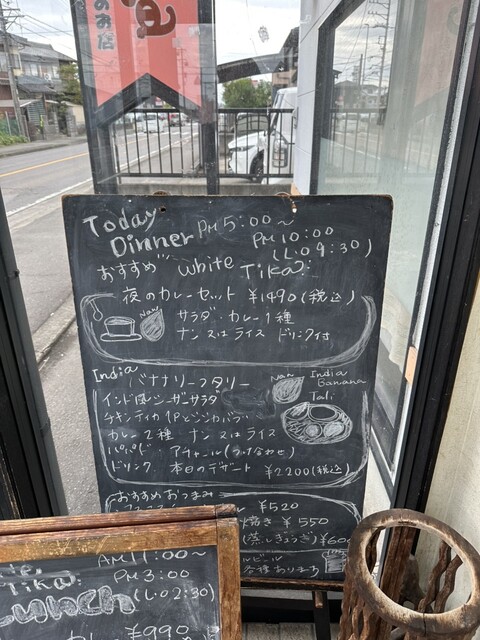 のみ店
Today
Dinner PM 5:00〜
PM 10:00
(L.O 9:30)
おすすめ white Tika
夜のカレーセット ¥1490(税込)
Nan
サラダ・カレー1種
ナン又はライス ドリンク付
India
バナナリーフタリー
Nan
India
Banana
Tali
インド風シーザーサラダ
チキンティカ1Pとシシカバブ
カレー2種 ナン又はライス
パパド アチャール(つけ合わせ)
ドリンク 本日のデザート ¥2200(税込)
おすすめおつまみ
¥520
焼き ¥550
(蒸しぎょうざ) ¥600
ビール
各種あります
Tika
AM 11:00〜
PM 3:00
(L.O 2:30)
Lunch
カレー ¥990